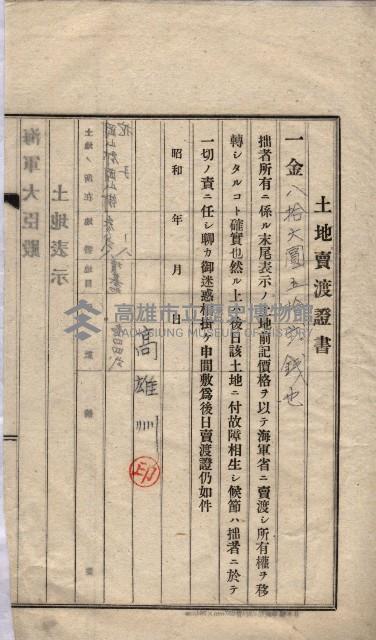 土地賣渡證書
一金八拾六圓五拾錢也
拙者所有ニ係ル末尾表示ノ土地前記價格ヲ以テ海軍省ニ賣渡シ所有權ヲ移
轉シタルコト確實也然ル上ハ後日該土地ニ付故障相生シ候節ハ拙者ニ於テ
一切ノ責ニ任シ聊カ御迷惑相掛ケ申間敷爲後日賣渡證仍如件
昭和 年 月 日
高雄州
印
土地ノ所在 地番 地目
土地表示
海軍大臣殿
高雄市立歷史博物館
KAOHSIUNG MUSEUM OF HISTORY